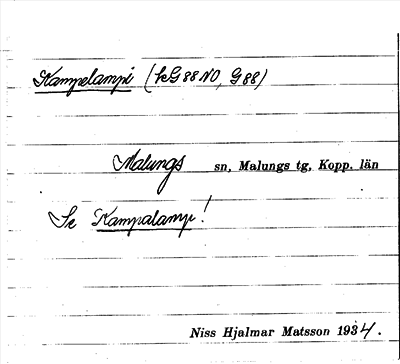 Kampelampi (heG88NO, G88)
Malungs sn, Malungs tg, Kopp. län
Se Kampalamp!
Niss Hjalmar Matsson 1934.